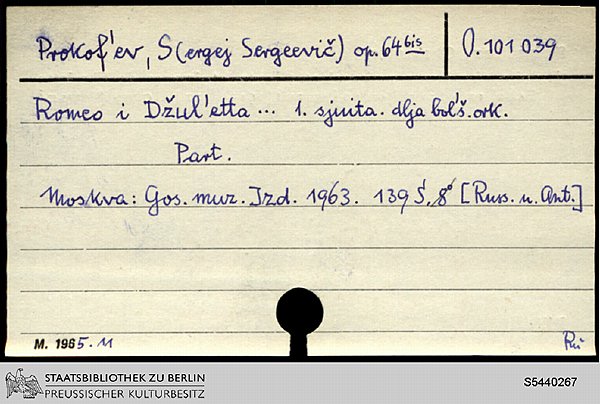 Prokof'ev, S(ergej Sergeevič) op. 64 bis
O. 101 039
Romeo i Džul'etta ... 1. sjuita. dlja bol'š. ork.
Part.
Moskva: Gos. muz. Izd. 1963. 139 S. 8° [Russ. u. Ant.]
M. 1965. 11
Ru
STAATSBIBLIOTHEK ZU BERLIN
PREUSSISCHER KULTURBESITZ
S5440267